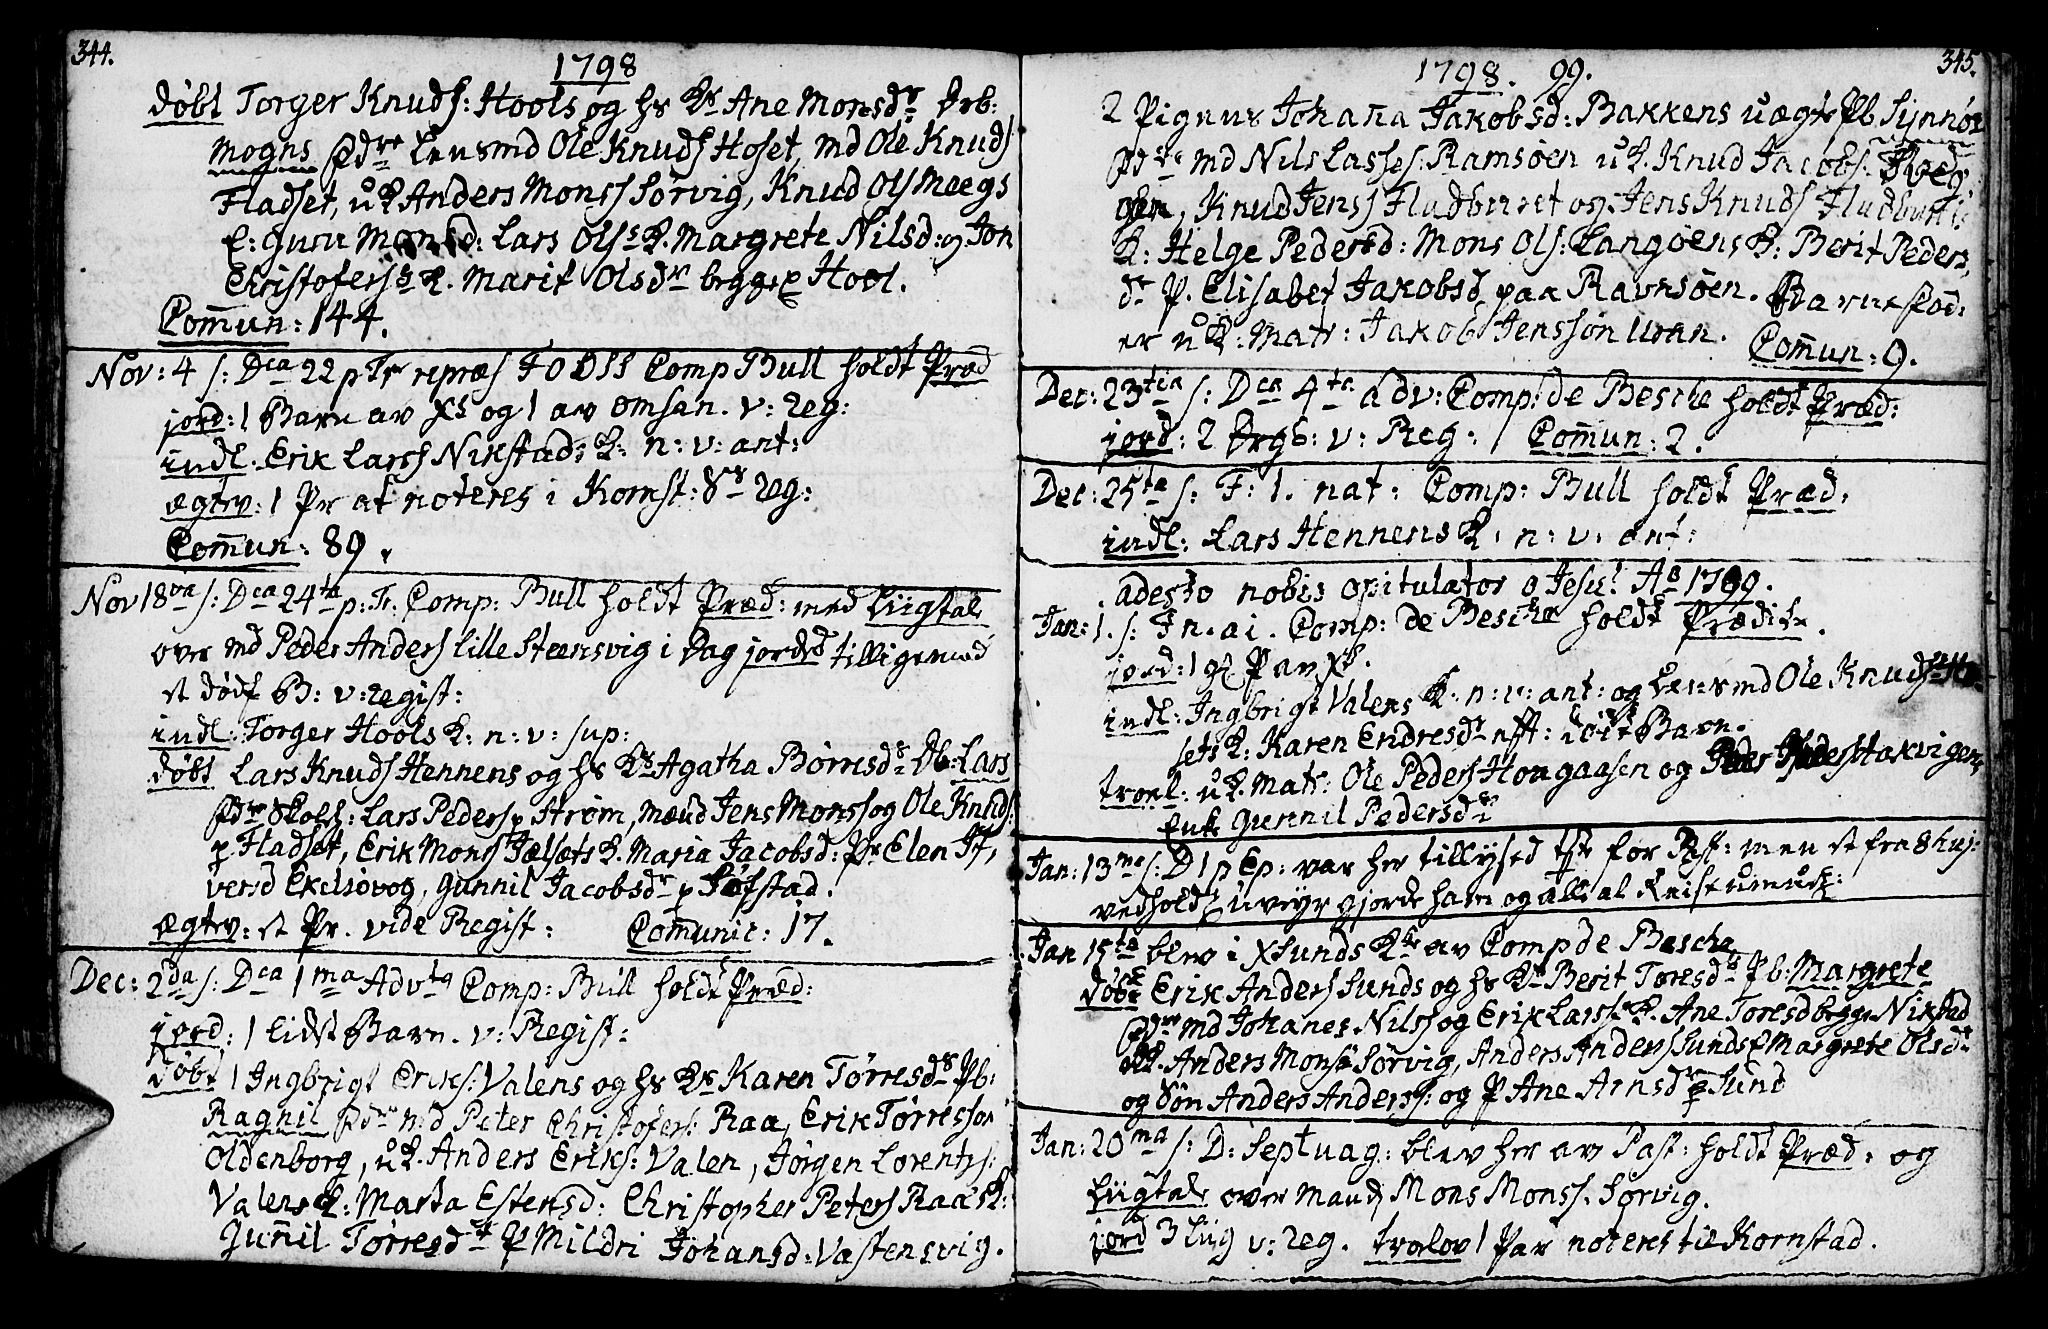 344.
1798
døbt Torger Knuds: Hools og hs K Ane Monsdr Drb:
Mogns Fdre Lensmd Ole Knuds Hoset, md Ole Knuds
Fladset, uK Anders Monss Sørvig, Knud Ols Meegs
E: Guru Monsd: Lars Olss K. Margrete Nilsd: og Jon
Christoferss K. Marit Olsdr begge p Hool.
Comun: 144.
Nov: 4 s: Dca 22 p Tr repræs F O DSS Comp Bull holdt Præd
jord: 1 Barn av Xs og 1 av omsan. v: reg:
indl. Erik Larss Nikstad: K: n: v: ant:
ægtv: 1 Pr at noteres i Kornst: S reg:
Comun: 89.
Nov 18va s: Dca 24ta p: Tr. Comp: Bull holdt Præd: med Liigtale
over md Peder Anders Lille Steensvig i Dag jorded tilligemed
et dødf B: v: regist:
indl. Torger Hools K: n: v: sup:
døbt Lars Knuds Hennens og hs K Agatha Børresd: Db: Lars
Fdre Skolh: Lars Peders p Strøm, Mænd Jens Monss og Ole Knuds:
p Fladset, Erik Mons Jælsets K. Maria Jacobsd: Pr Elen If,
versd Exelsøvog, Gunnil Jacobsdr p Søfstad.
ægtev: et Pr. vide Regist: Comunic: 17.
Dec: 2da s: Dca 1ma Advta Comp: Bull holdt Præd:
jord: 1 lidet Barn. v: Regist:
døbt 1 Ingbrigt Eriks: Valens og hs K Karen Tørresd Pb:
Ragnil Fdr md Peter Christofers: Raa, Erik Tørressøn
Oldenborg, uK. Anders Eriks: Valen, Jørgen Lorentzs:
Valens K: Marta Estensd: Christopher Peters Raas K:
Gunnil Tørresdt P Mildri Johansd: Vastensvig.
345.
1798. 99.
2 Pigens Johana Jakobsd: Bakkens uægte Pb Synnøv
Fdre md Nils Lasses: Ramsøen uK. Knud Jacobs:
Knud Jens Fludburet og Jens Knuds
K: Helge Pedersd: Mons Ols: Langøens K: Berit Peders
dr P. Elisabet Jakobsd paa Ramsøen. Barnefad:
er uK: Matr: Jakob Jenssøn Uran. Comun: 9.
Dec: 23tia s: Dca 4ta adv: Comp: de Besche holdt Præd:
jord: 2 Drgb: v: Reg: Comun: 2.
Dec: 25ta s: F: 1. nat: Comp: Bull holdt Præd:
indl: Lars Hennens K: n: v: ant:
adesto nobis opitulator o Jesu! Ao 1799.
Jan: 1. s: Fn. ai. Comp: de Besche holdt Prædike.
jord: 1 gl P av Xs.
indl: Ingbrigt Valens K: n: v: ant: og Lensmd Ole Knuds Ho
sets K: Karen Endresdr eft: Barn.
troel: uK. Matr: Ole Peders Hougaasen og Peder Peders Haxvigens
Enke Gunnil Pedersd
Jan: 13ma s: D 1 p Ep: var her tillysed for men et fra 8
vedholdt Uveyr gjorde ham og alle al
Jan 15ta blev i XSunds Kke av Comp de Besche
døbt Erik Anders Sunds og hs K Berit Toresd Pb: Margrete
Fdre md Johanes Nilss og Erik Larss K. Ane Toresd begge Nikstad
uK. Anders Mons Sørvig, Anders Anders Sunds P Margrete Olsdr
og Søn Anders Anderss: og P Ane Arnsdr p Sund
Jan: 20ma s: D: Septuag: blev her av Past: holdt Præd: og
Liigtale over Mand Mons Mons. Sørvig.
jord 3 Liig v: reg. trolov 1 Par noteres til Kornstad.